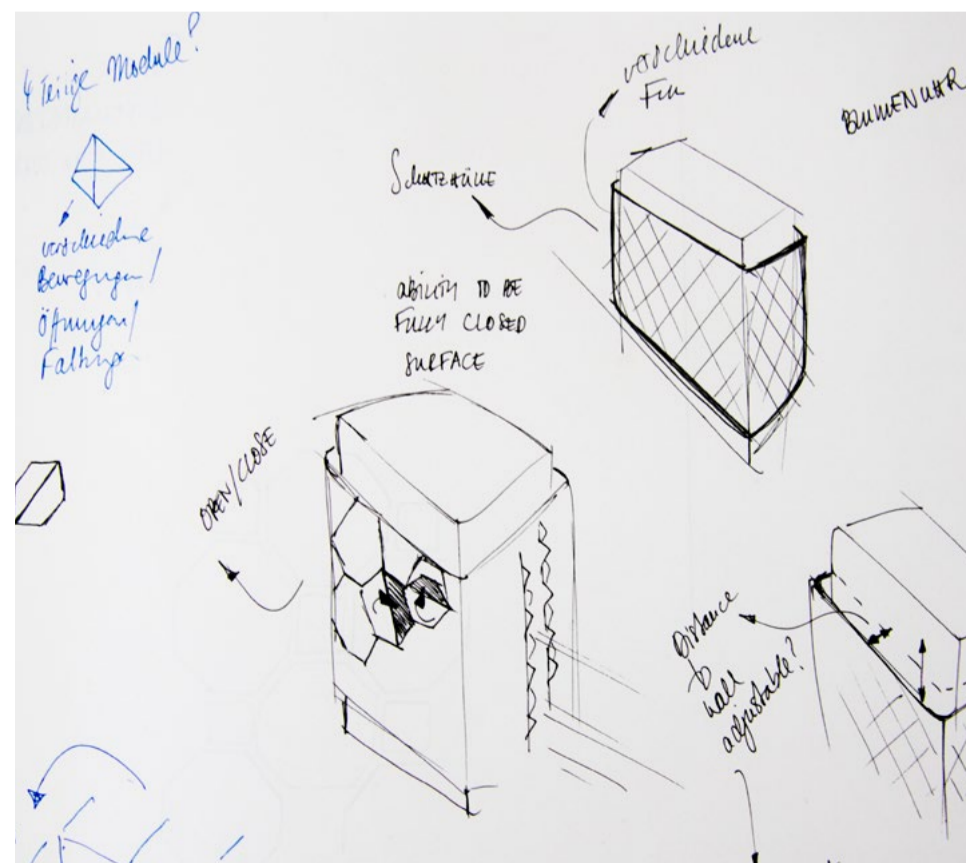 4 Teilige Module?
verschiedene
Bewegungen/
Öffnungen/
Faltungen
verschiedene
BLUMENUHR
SCHUTZHÜLLE
ABILITY TO BE
FULLY CLOSED
SURFACE
OPEN/CLOSE
Distance
to
wall
adjustable?